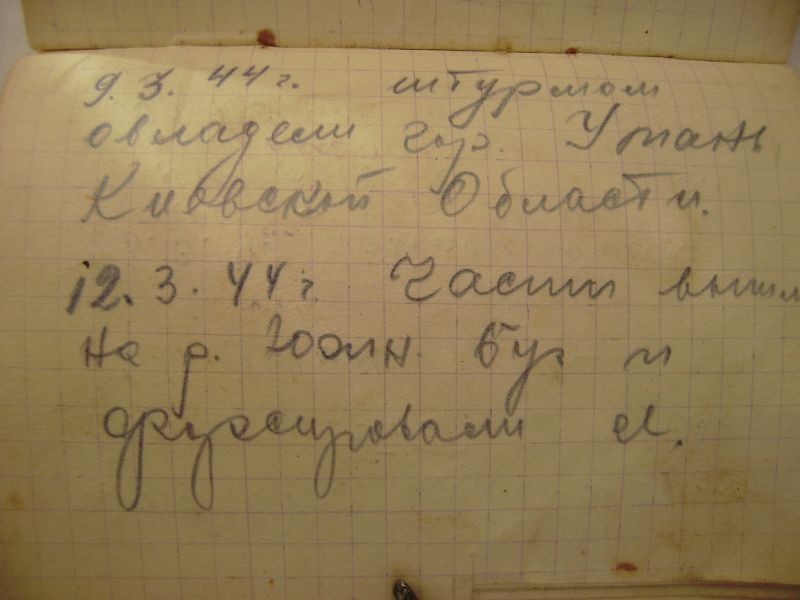 9. 3. 44 г. штурмом
овладели гор. Умань
Киевской Области.
12. 3. 44 г. Части вышли
на р. Южн. Буг и
форсировали её.